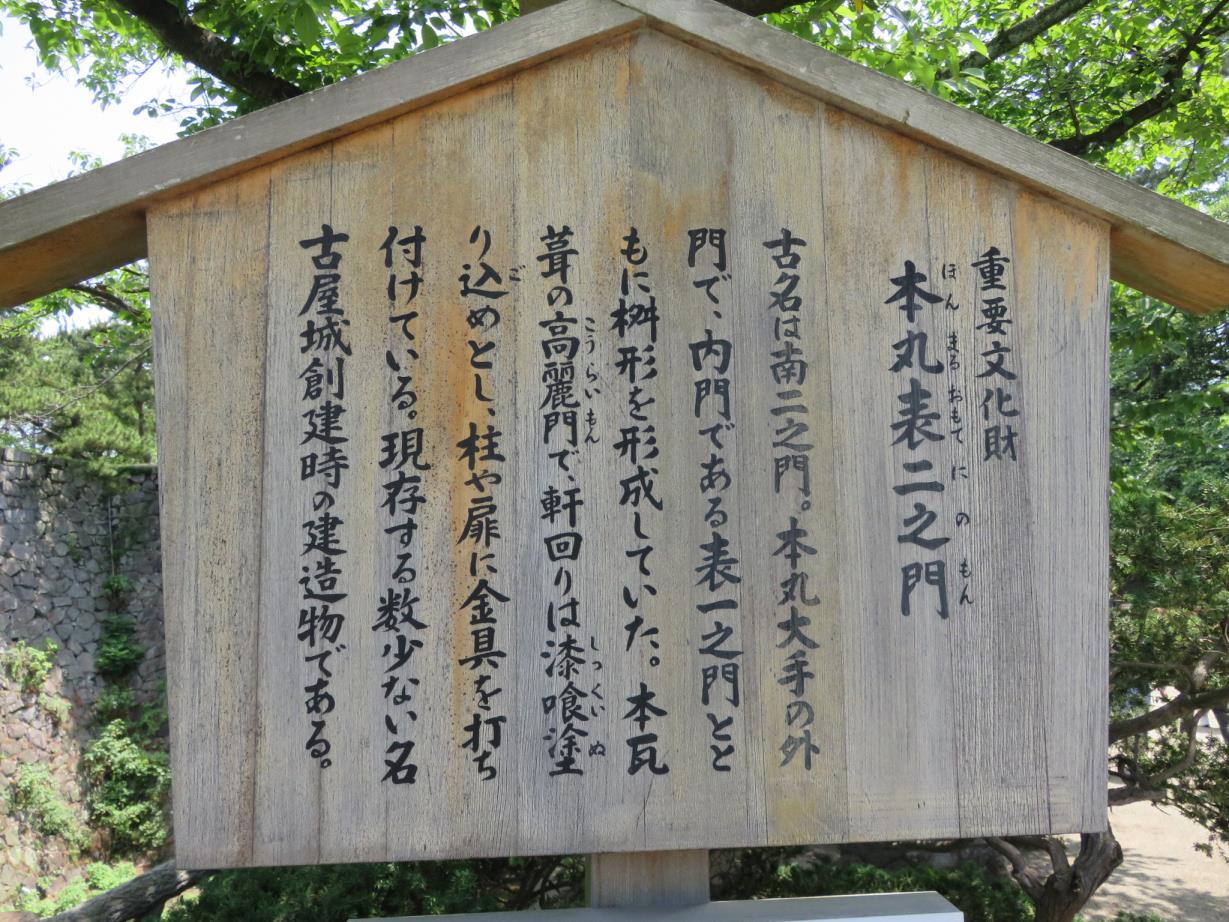 重要文化財
本丸表二之門
ほんまるおもてにのもん
古名は南二之門。本丸大手の外
門で、内門である表一之門とと
もに桝形を形成していた。本瓦
葺の高麗門で、軒回りは漆喰塗
こうらいもん
しっくいぬ
り込めとし、柱や扉に金具を打ち
ご
付けている。現存する数少ない名
古屋城創建時の建造物である。